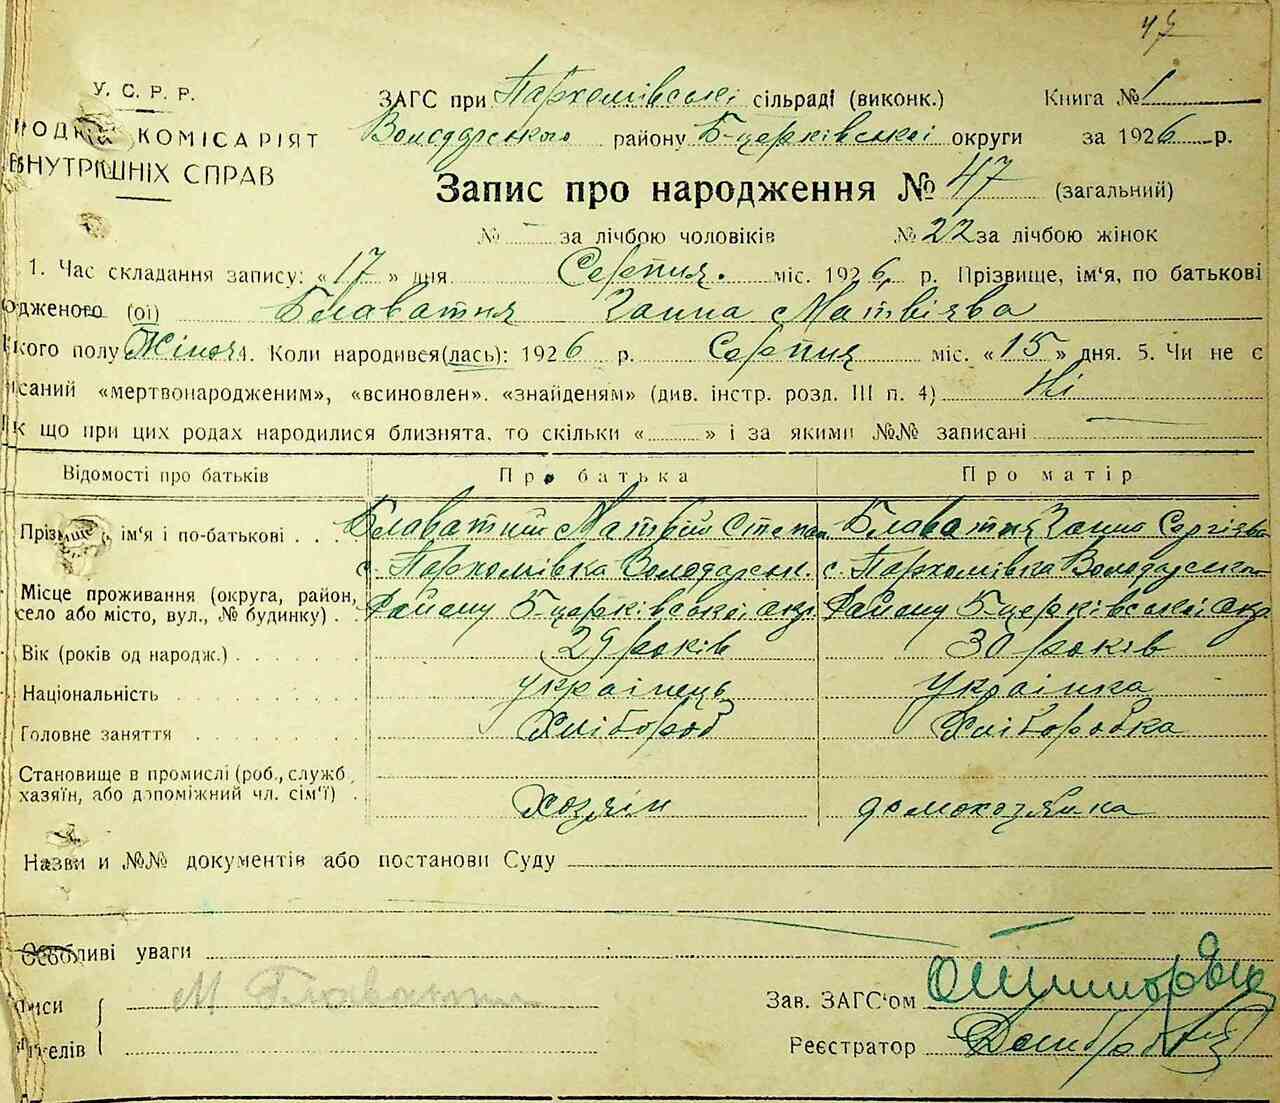 47
У. С. Р. Р.
ЗАГС при Пархомівській сільраді (виконк.) Книга № 1
КОМІСАРІЯТ Володарського району Б-церківської округи за 1926 р.
ВНУТРІШНІХ СПРАВ
Запис про народження № 47 (загальний)
№ – за лічбою чоловіків № 22 за лічбою жінок
1. Час складання запису: «17» дня Серпня. міс. 1926 р. Прізвище, ім'я, по батькові
одженого (ої) Блаватня Ганна Матвієва
кого полу Жіноч 4. Коли народився (лась): 1926 р. Серпня міс. «15» дня. 5. Чи не є
исаний «мертвонародженим», «всиновлен», «знайденям» (див. інстр. розд. III п. 4) Ні
к що при цих родах народилися близнята, то скільки « » і за якими №№ записані
Відомості про батьків Про батька Про матір
Прізвище, ім'я і по-батькові Блаватний Матвій Степан. Блаватня Ганна Сергієва
с. Пархомівка Володарськ. с. Пархомівка Володарського
Місце проживання (округа, район,
село або місто, вул., № будинку) Району Б-церківської окр. Району Б-церківської окр
Вік (років од народж.) 29 років 30 років
Національність Українець Українка
Головне заняття Хлібороб Хліборобка
Становище в промислі (роб., служб,
хазяїн, або допоміжний чл. сім'ї) Хозяін домохозяйка
Назви и №№ документів або постанови Суду
Особливі уваги
писи М Блаватний Зав. ЗАГС'ом
телів Реєстратор